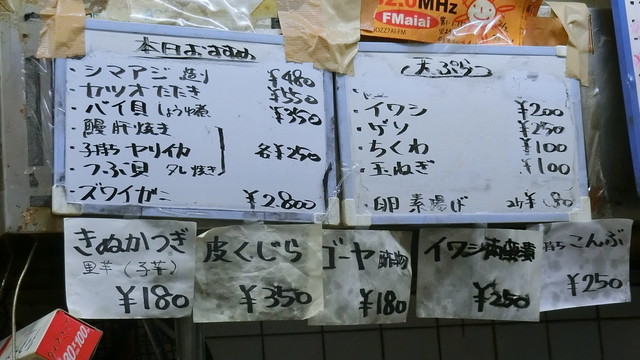 2.0MHz
FMaiai
JOZZ7AI-FM
本日おすすめ
・シマアジ 造り ¥480
・カツオたたき ¥550
・バイ貝しょうゆ煮 ¥350
・鰻肝焼き
・子持ちヤリイカ 各¥250
・つぶ貝 タレ焼き
・ズワイガニ ¥2,800
天ぷら
・イワシ ¥200
・ゲソ ¥250
・ちくわ ¥100
・玉ねぎ ¥100
・卵素揚げ ¥80
きぬかつぎ
里芋(子芋)
¥180
皮くじら
¥350
ゴーヤ酢物
¥180
イワシ
¥250
こんぶ
¥250